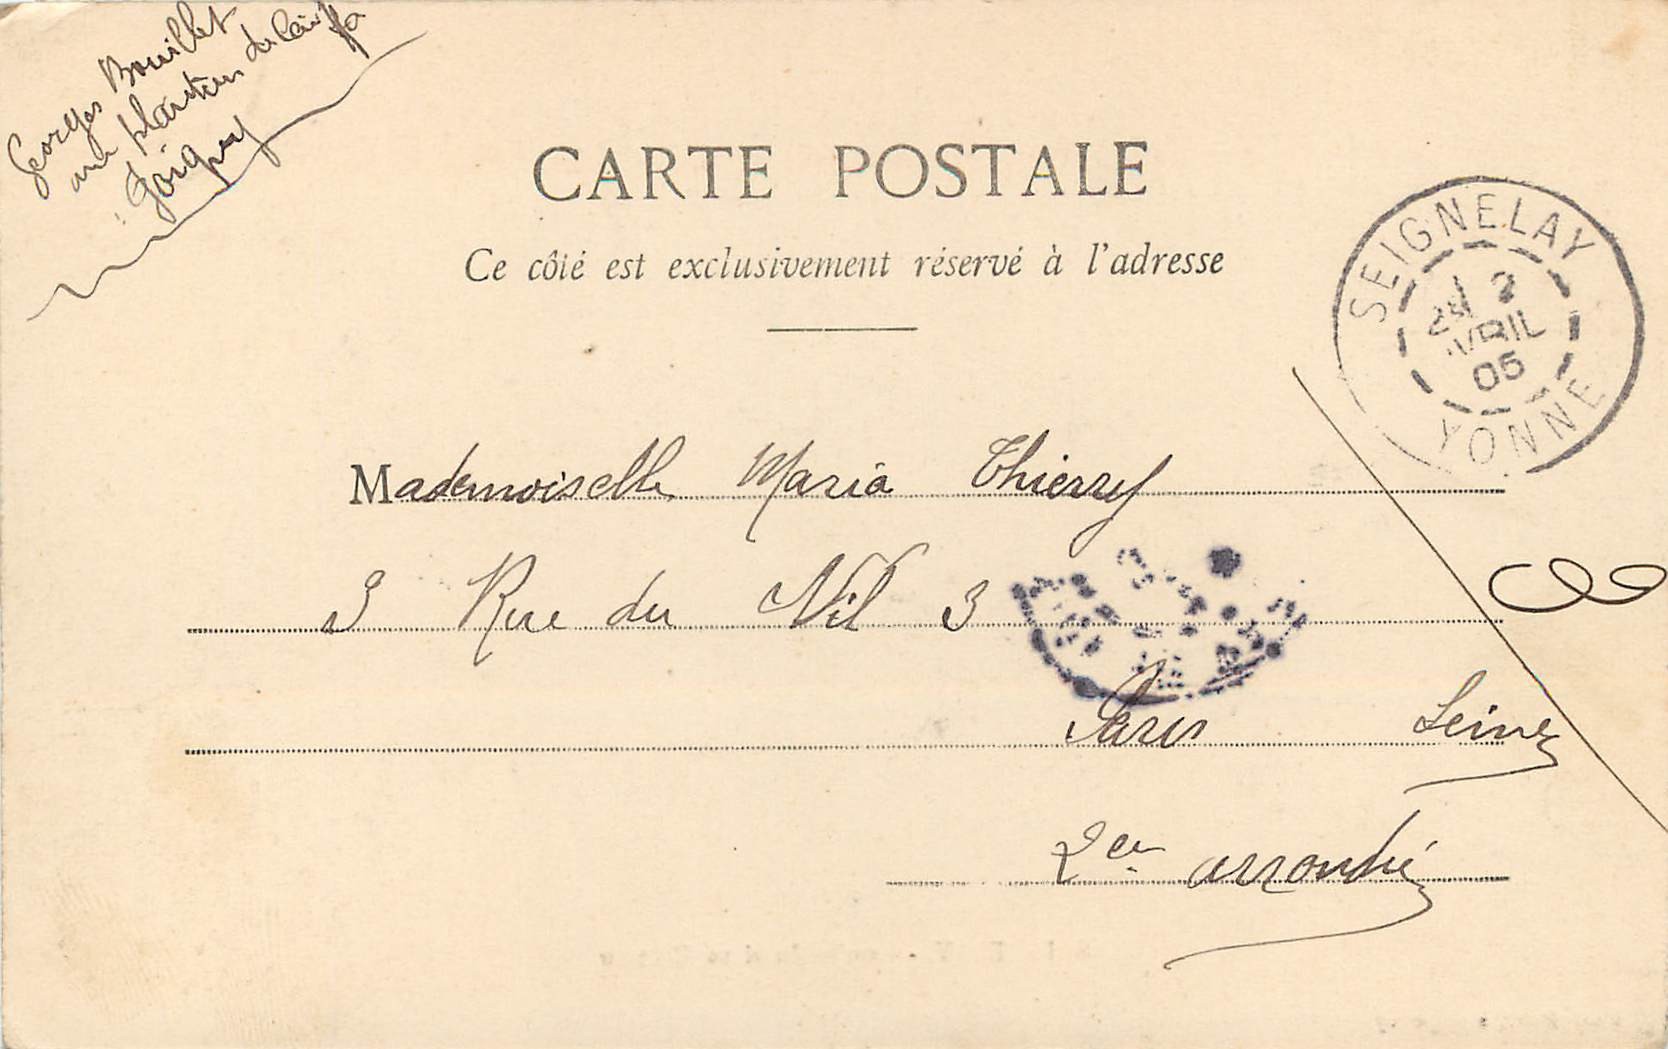 Georges Bouillet
Joigny
CARTE POSTALE
Ce côté est exclusivement réservé à l'adresse
SEIGNELAY
2
AVRIL
05
YONNE
Mademoiselle Maria Thierry
3 Rue du Nil 3
Paris Seine
2e arrondi